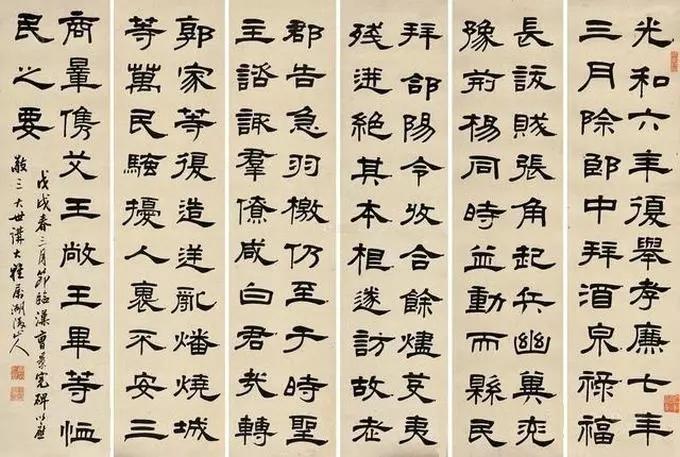 光和六年復舉孝廉七年
三月除郎中拜酒泉祿福
長訞賊張角起兵幽冀兖
豫荊楊同時並動而縣民
拜郃陽令收合餘燼芟夷
殘迸絕其本根遂訪故老
郡告急羽檄仍至于時聖
主諮諏羣僚咸曰君哉轉
郭家等復造逆亂燔燒城
等萬民騷擾人裹不安三
商暈儁艾王敞王畢等恤
民之要
戊戌春三月節臨漢曹景完碑以應
敬三大世講大雅屬湖人